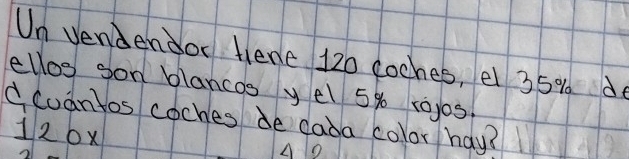 Un vendendor tiene 120 coches, el 35% de
ellos son blancos y el 5% rojos.
¿Cuántos coches de cada color hay?
120x